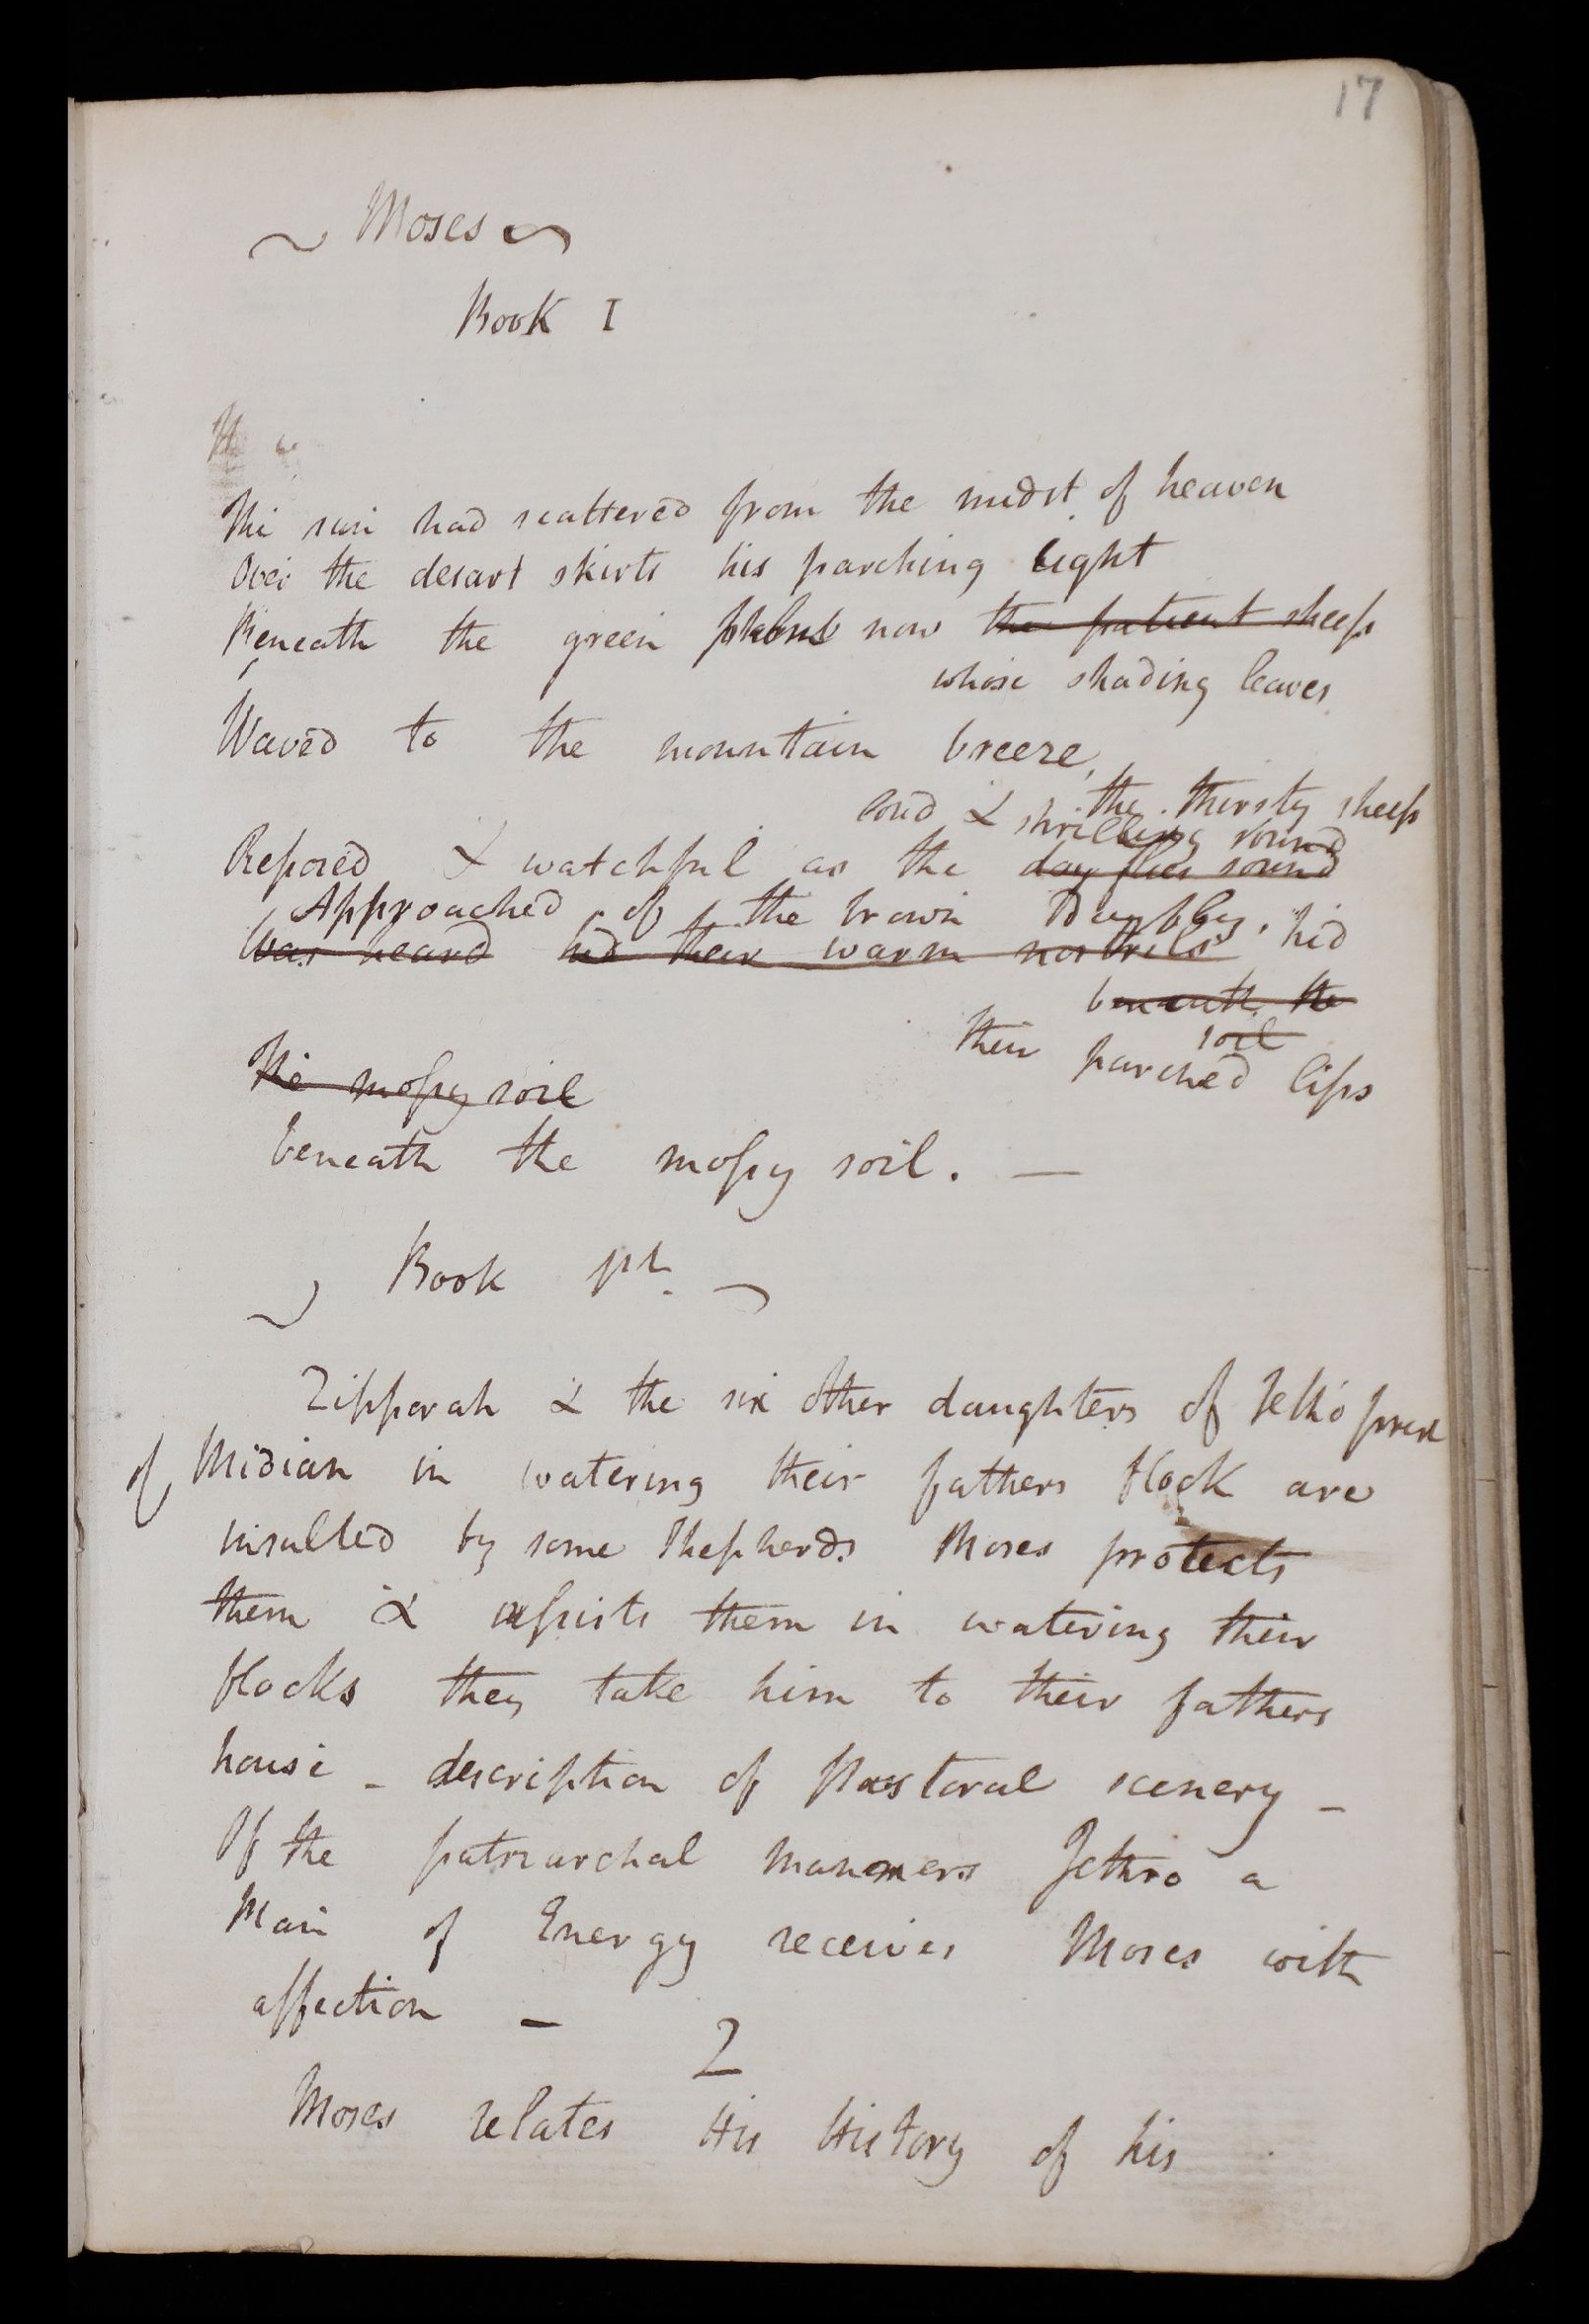 17
Moses
Book I
The sun had scattered from the midst of heaven
Over the desart skirts his parching light
Beneath the green palms now the patient sheep
whose shading leaves
Waved to the mountain breeze,
the thirsty sheep
loud & shrilling sound
Reposed & watchful as the day flies sound
Approached of the brown Dayfly, hid
Was heard hid their warm nostrils
beneath the
soil
their parched lips
The moſsy soil
beneath the moſsy soil. —
Book 1st.
Zipporah & the six other daughters of Jethro priest
of Midian in watering their fathers flock are
insulted by some Shepherds Moses protects
them & aſsists them in watering their
flocks they take him to their fathers
house - description of Pastoral scenery -
Of the patriarchal manners Jethro a
Man of Energy receives Moses with
affection -
2
Moses relates His History of his